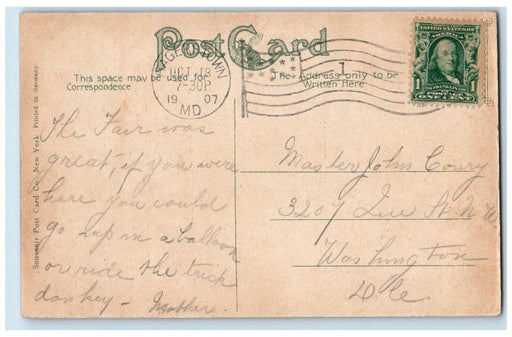 Post Card
This space may be used for
Correspondence
The Address only to be
Written Here
OCT 18
7-30P
19 07
MD
1
UNITED STATES OF
AMERICA
1 1
POSTAGE
ONE CENT
Souvenir Post Card Co., New York. Printed in Germany.
The Fair was
great, if you were
here you could
go up in a balloon
or ride the trick
donkey - Mother.
Master John
3207 St. N.W.
Washington
D.C.